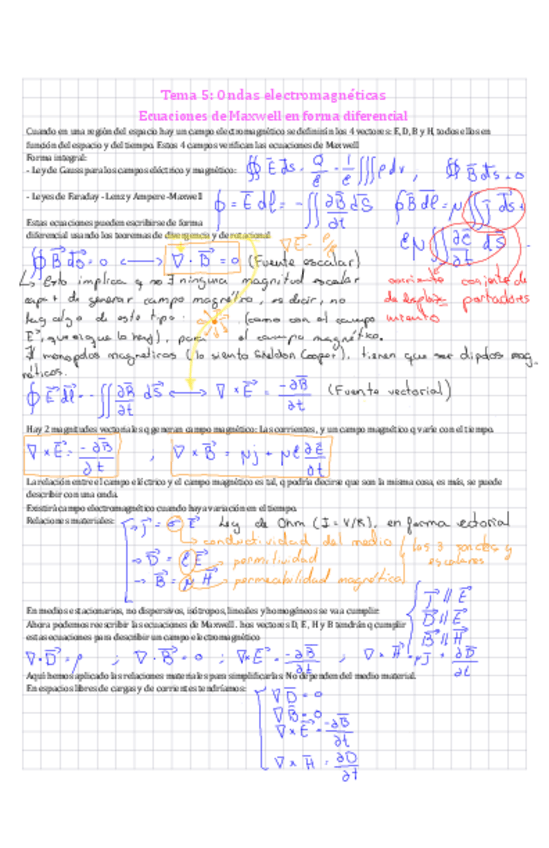 Tema 5: Ondas electromagnéticas
Ecuaciones de Maxwell en forma diferencial
Cuando en una región del espacio hay un campo electromagnético se definirán los 4 vectores: E, D, B y H, todos ellos en
función del espacio y del tiempo. Estos 4 campos verifican las ecuaciones de Maxwell
Forma integral:
- Ley de Gauss para los campos eléctrico y magnético: ∯ E⃗ ds⃗ = Q/ε = 1/ε ∭ ρ dv , ∯ B⃗ ds⃗ = 0
- Leyes de Faraday - Lenz y Ampere - Maxwell ∮ = E⃗ dl⃗ = - ∬ ∂B⃗/∂t dS⃗ ∮ B⃗ dl⃗ = μ ∬ j⃗ ds⃗ +
εμ ∬ ∂E⃗/∂t ds⃗
Estas ecuaciones pueden escribirse de forma
diferencial usando los teoremas de divergencia y de rotacional
∯ B⃗ ds⃗ = 0 ⟷ ∇ · B⃗ = 0 (Fuente escalar)
corriente de desplazamiento
corriente de portadores
↳ Esto implica q no ∃ ninguna magnitud escalar
capaz de generar campo magnético, es decir, no
hay algo de este tipo: (como con el campo
E⃗, que sí que lo hay), para el campo magnético.
∄ monopolos magnéticos (lo siento Sheldon Cooper), tienen que ser dipolos mag-
néticos.
∮ E⃗ dl⃗ = - ∬ ∂B⃗/∂t dS⃗ ⟷ ∇ × E⃗ = -∂B⃗/∂t (Fuente vectorial)
Hay 2 magnitudes vectoriales q generan campo magnético: Las corrientes, y un campo magnético q varíe con el tiempo.
∇ × E⃗ = -∂B⃗/∂t , ∇ × B⃗ = μj + με ∂E⃗/∂t
La relación entre el campo eléctrico y el campo magnético es tal, q podría decirse que son la misma cosa, es más, se puede
describir con una onda.
Existirá campo electromagnético cuando haya variación en el tiempo.
Relaciones materiales: → j⃗ = σ E⃗ Ley de Ohm (I = V/R), en forma vectorial
conductividad del medio
→ D⃗ = ε E⃗ → permitividad
→ B⃗ = μ H⃗ → permeabilidad magnética
los 3 y escalares
En medios estacionarios, no dispersivos, isótropos, lineales y homogéneos se va a cumplir: J⃗ // E⃗
D⃗ // E⃗
B⃗ // H⃗
Ahora podemos reescribir las ecuaciones de Maxwell. los vectores D, E, H y B tendrán q cumplir
estas ecuaciones para describir un campo electromagnético
∇ · D⃗ = ρ ; ∇ · B⃗ = 0 ; ∇ × E⃗ = -∂B⃗/∂t ; ∇ × H⃗ = μJ⃗ + ∂D⃗/∂t
Aquí hemos aplicado las relaciones materiales para simplificarlas. No dependen del medio material.
En espacios libres de cargas y de corrientes tendríamos: ∇ D̄ = 0
∇ B̄ = 0
∇ × E⃗ = -∂B̄/∂t
∇ × H̄ = ∂D/∂t